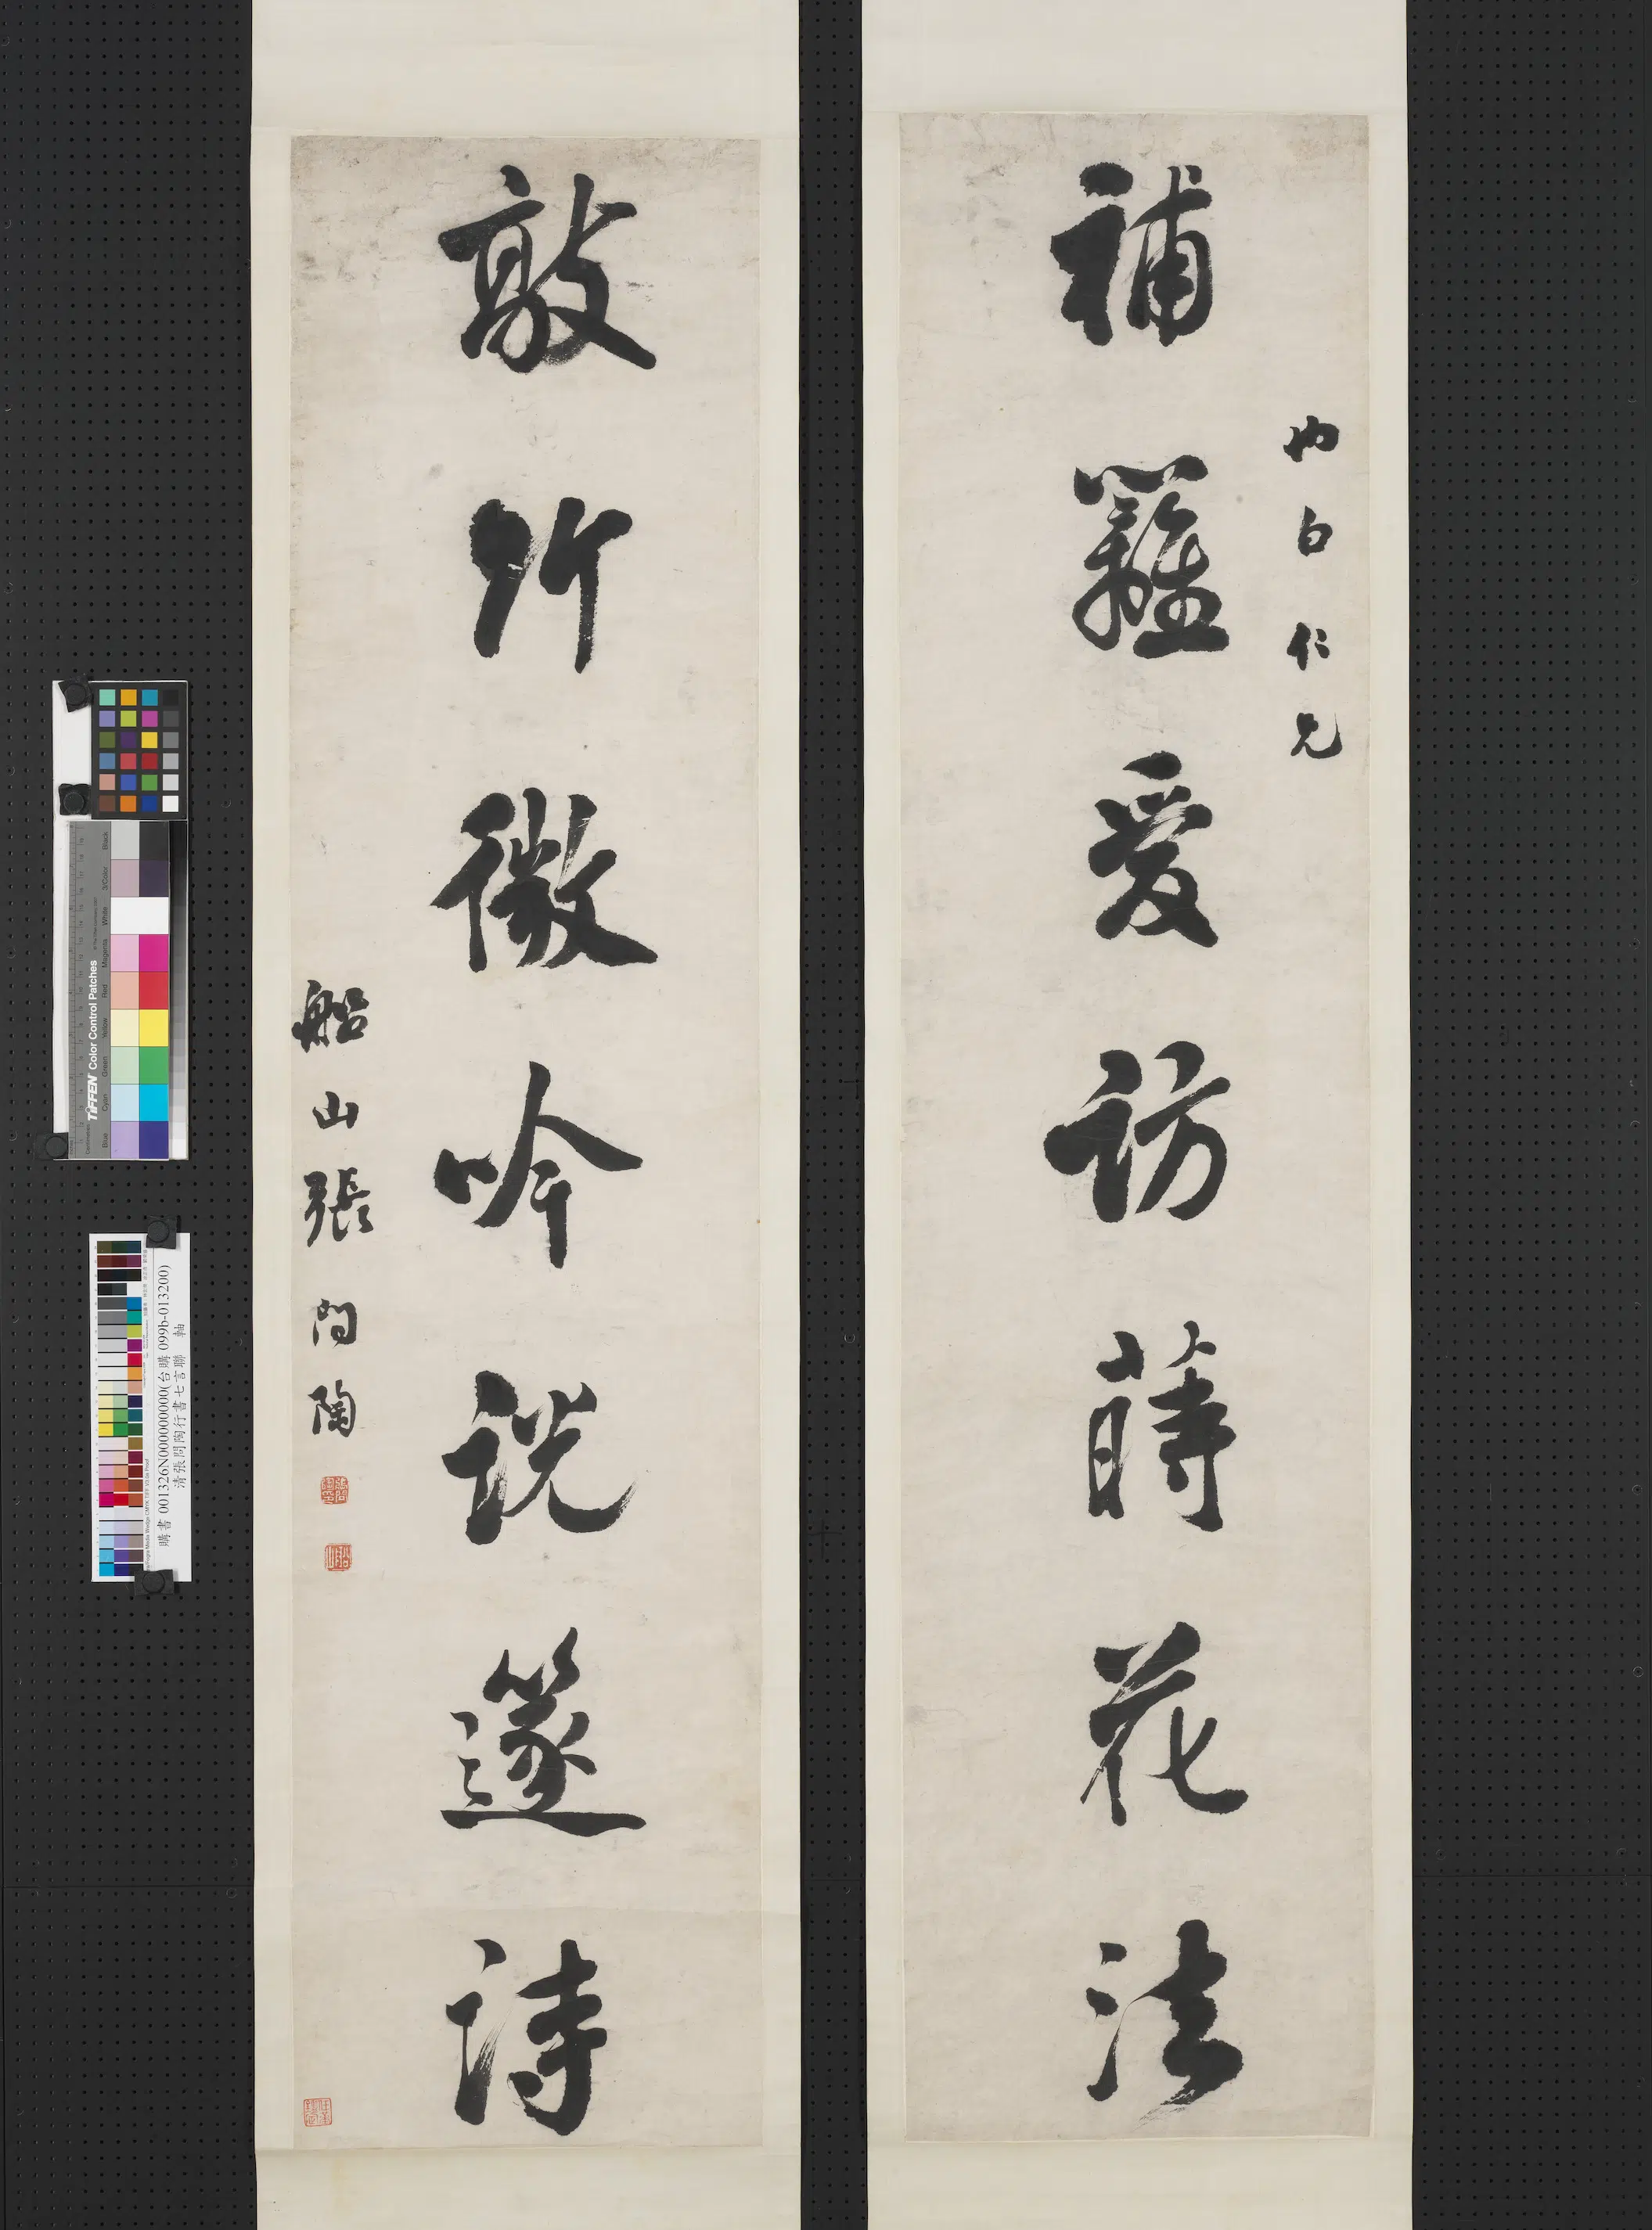 補籬愛訪蒔花法
白仁兄
敲竹微吟說篴詩
船山張問陶
購書 001326N000000000(台購 099b-013200)
清張問陶行書七言聯 軸
TIFFEN Color Control Patches
Blue Cyan Green Yellow Red Magenta White 3/Color Black